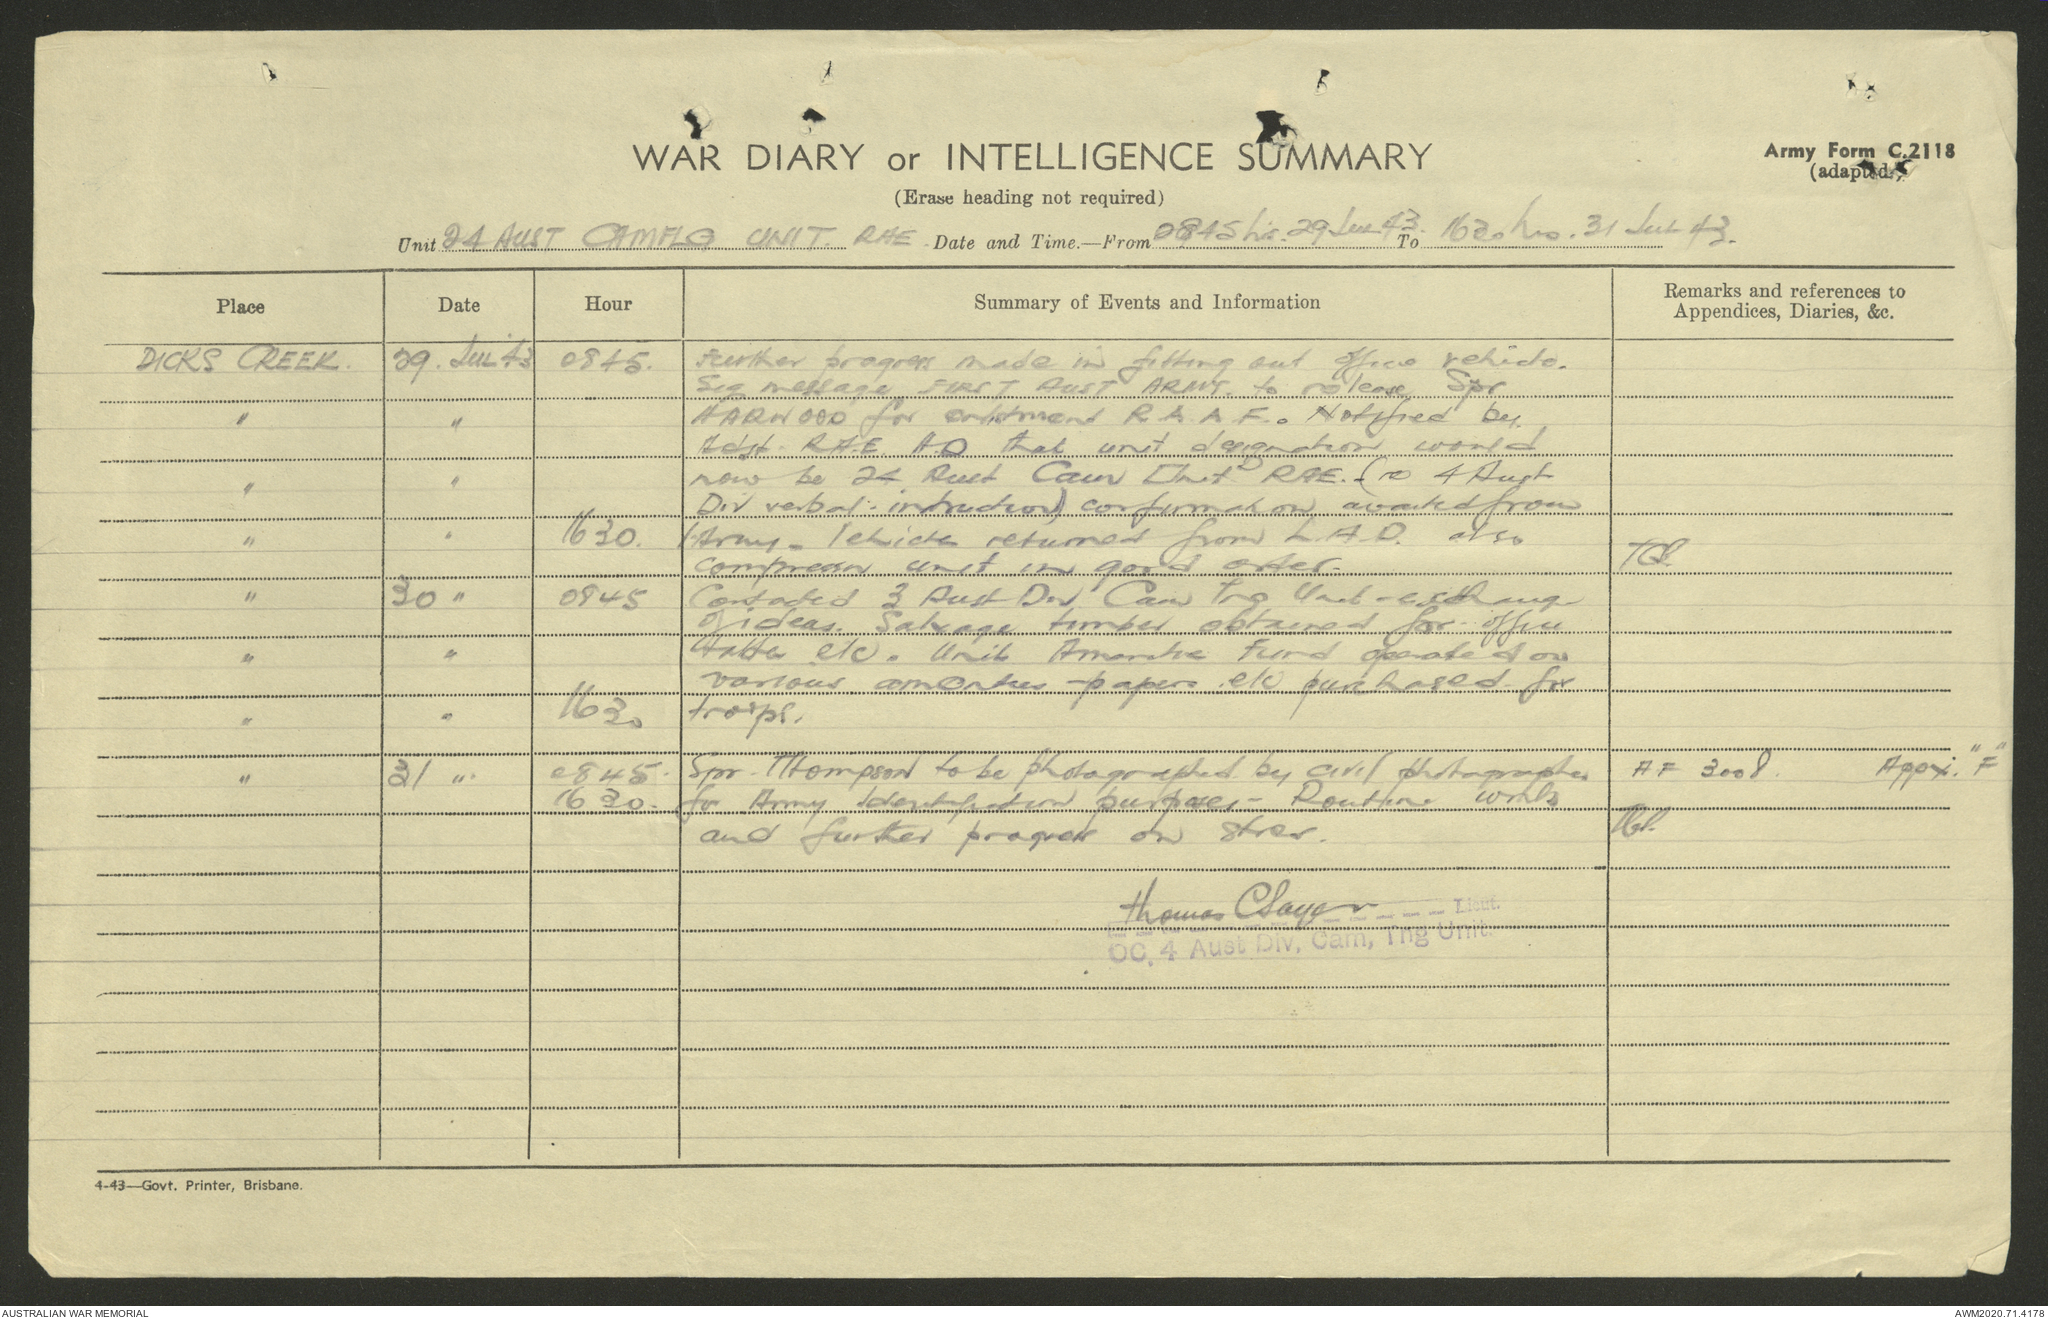 WAR DIARY or INTELLIGENCE SUMMARY
Army Form C.2118
(adapted)
(Erase heading not required)
Unit 24 AUST CAMFLG UNIT. RAE. Date and Time.—From 0845 hrs. 29 Jul 43. To 1630 hrs. 31 Jul 43.
Place Date Hour Summary of Events and Information Remarks and references to
Appendices, Diaries, &c.
DICKS CREEK. 29. Jul 43 0845. Further progress made in fitting out office vehicle.
Sig message FIRST AUST ARMY. to release Spr
" " HARWOOD for enlistment R.A.A.F. Notified by
Adjt. R.A.E. HQ that unit designation would
" " now be 24 Aust Cam Unit RAE. (re 4 Aust
Div verbal instruction) confirmation awaited from
" " 1630. 1 Army. Vehicle returned from L.A.D. also
compressor unit in good order.
" 30 " 0845 Contacted 3 Aust Div Cam Tng Unit - exchange
of ideas. Salvage timber obtained for office
" " etc. Unit Amenities Fund operated on
various amenities - papers etc purchased for
" " 1630 troops.
" 31 " 0845. Spr Thompson to be photographed by civil photographer A F 3008. Appx. "F"
1630. for Army identification purposes - Routine work
and further progress on
Thomas C Sayer Lieut.
OC, 4 Aust Div, Cam, Tng Unit.
4-43—Govt. Printer, Brisbane.
AUSTRALIAN WAR MEMORIAL
AWM2020.71.4178